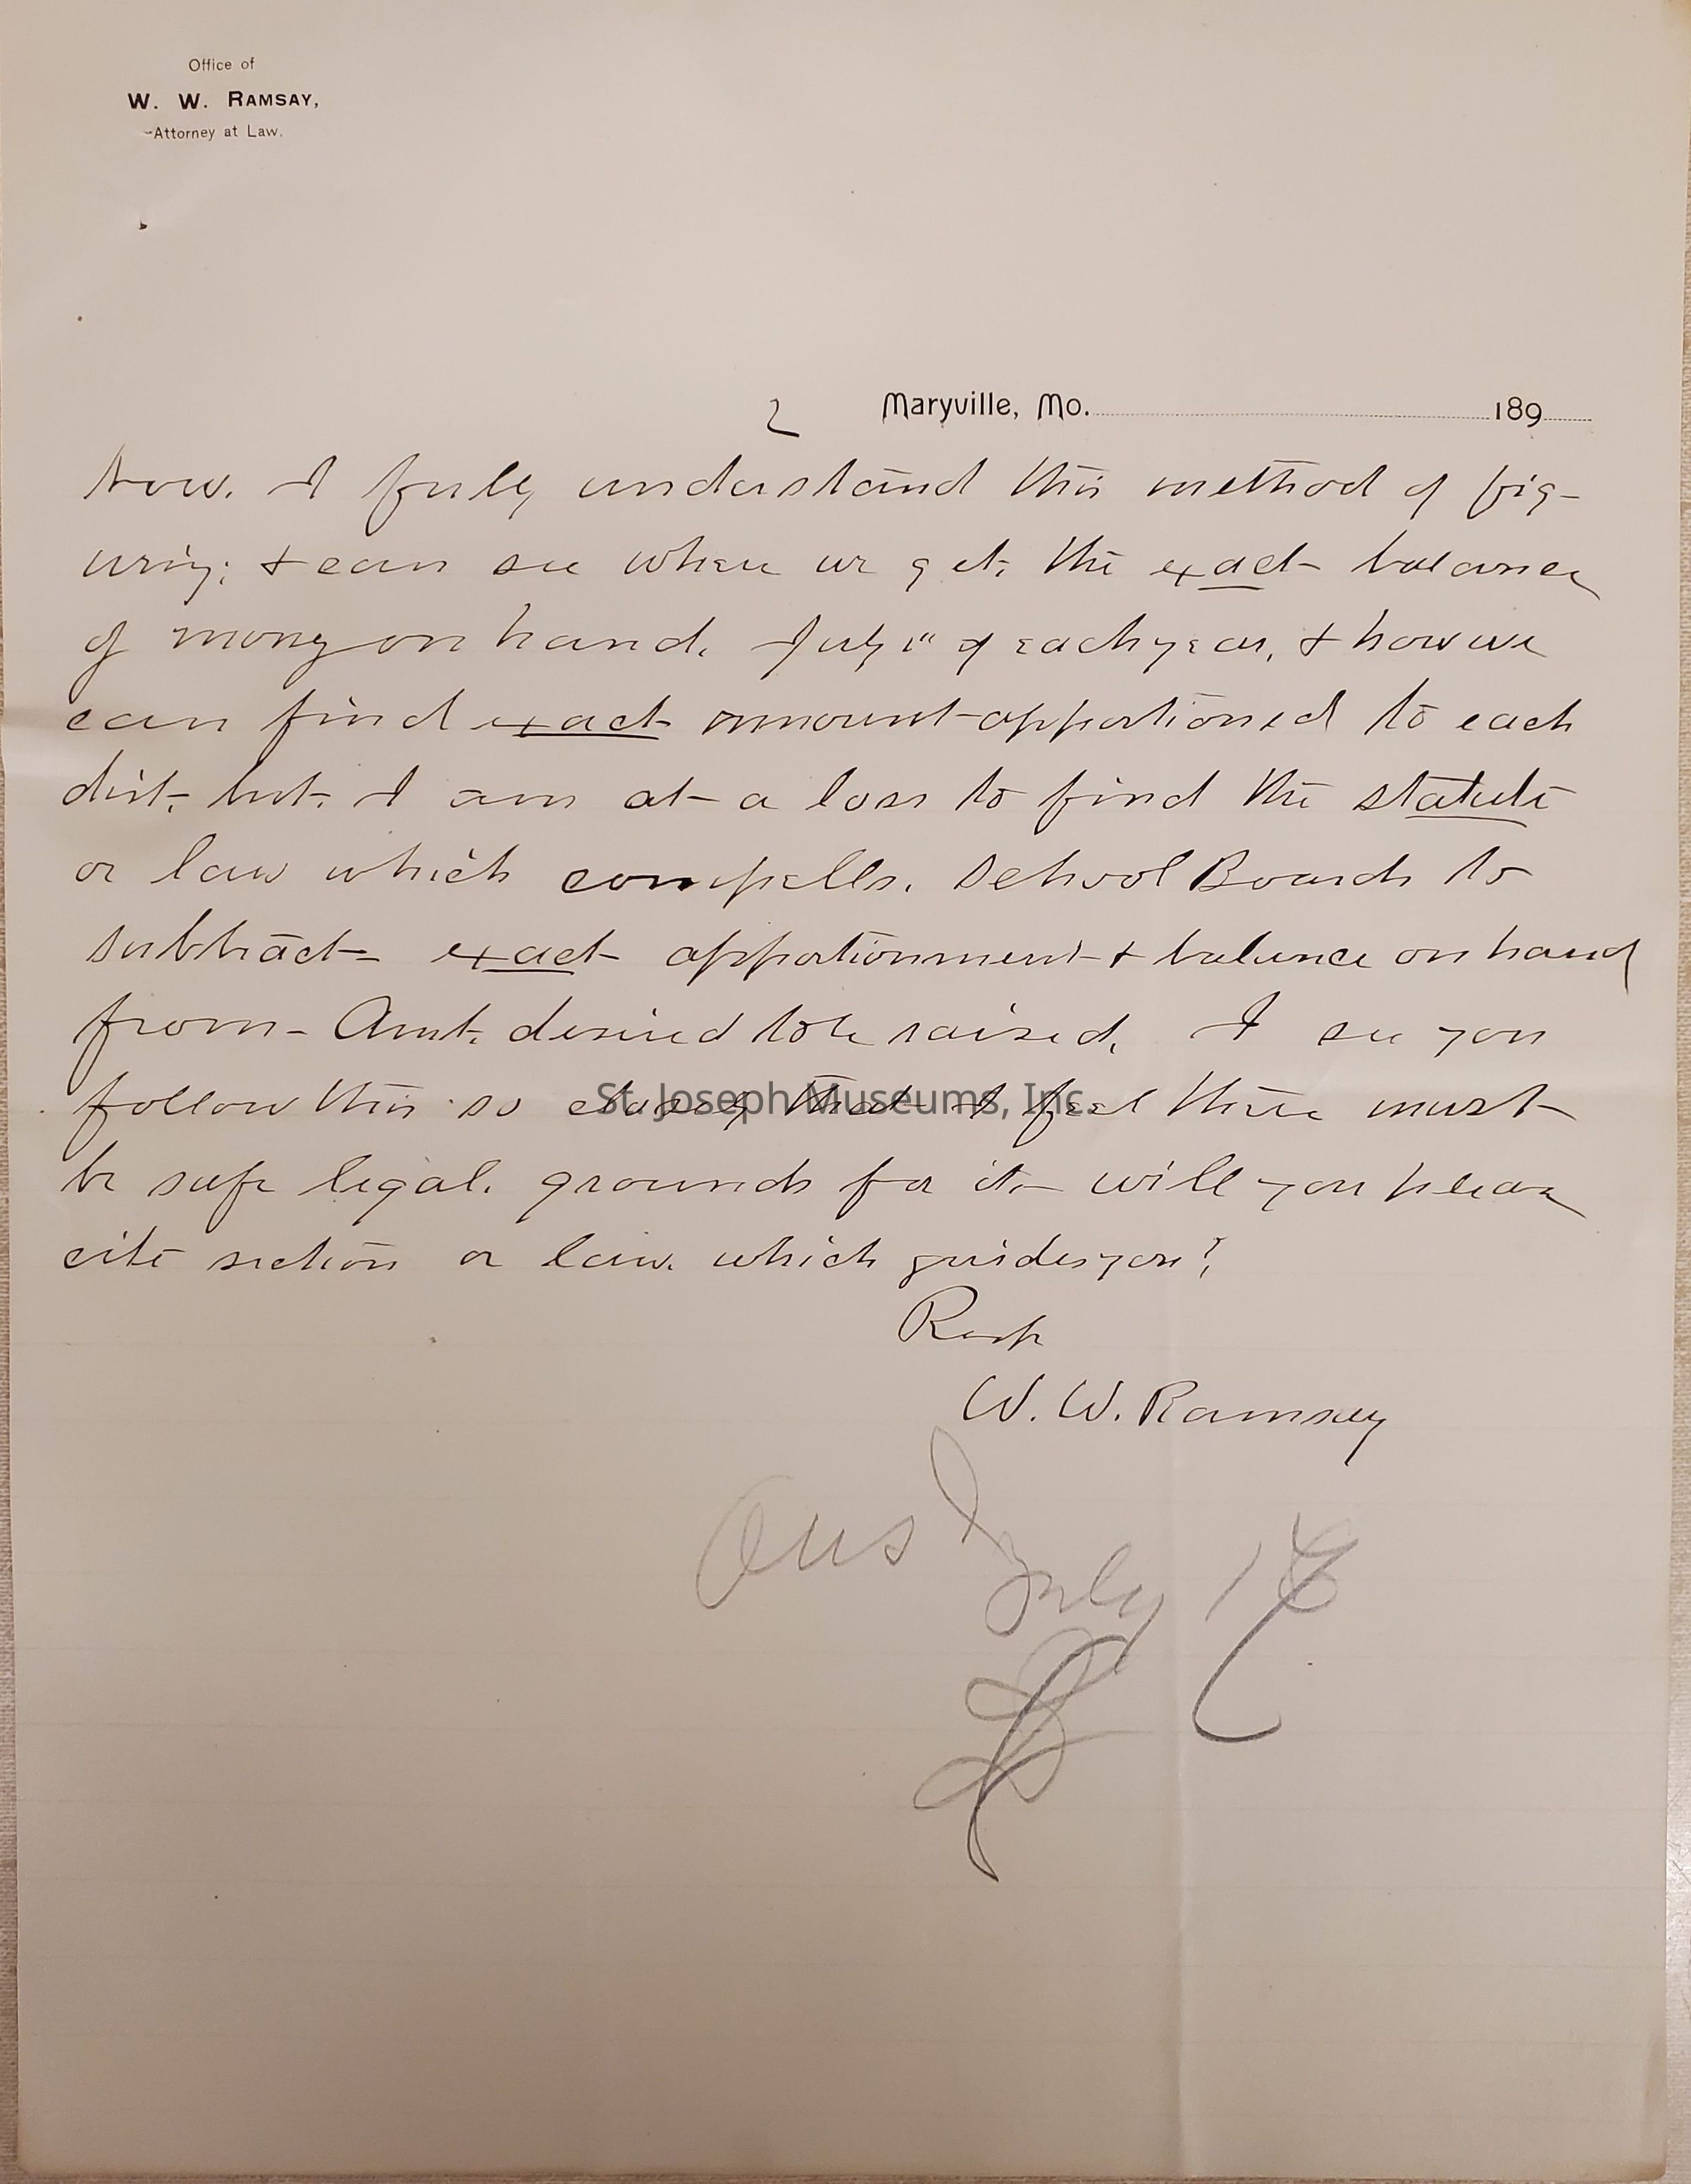 Office of
W. W. Ramsay,
Attorney at Law.
2 Maryville, Mo. 189
Now. I fully understand this method of fig-
uring; & can see where we get, the exact balance
of money on hand. July 1" of each year, & how we
can find exact ammount apportioned to each
dist. but. I am at a loss to find the statute
or law which compells. School Boards to
subtract exact apportionment & balance on hand
from Amt. desired to be raised. I see you
follow this so closely that I feel there must
be safe legal. grounds for it. will you please
cite section or law. which guides you?
Resp
W. W. Ramsay
Ans July
St. Joseph Museums, Inc.